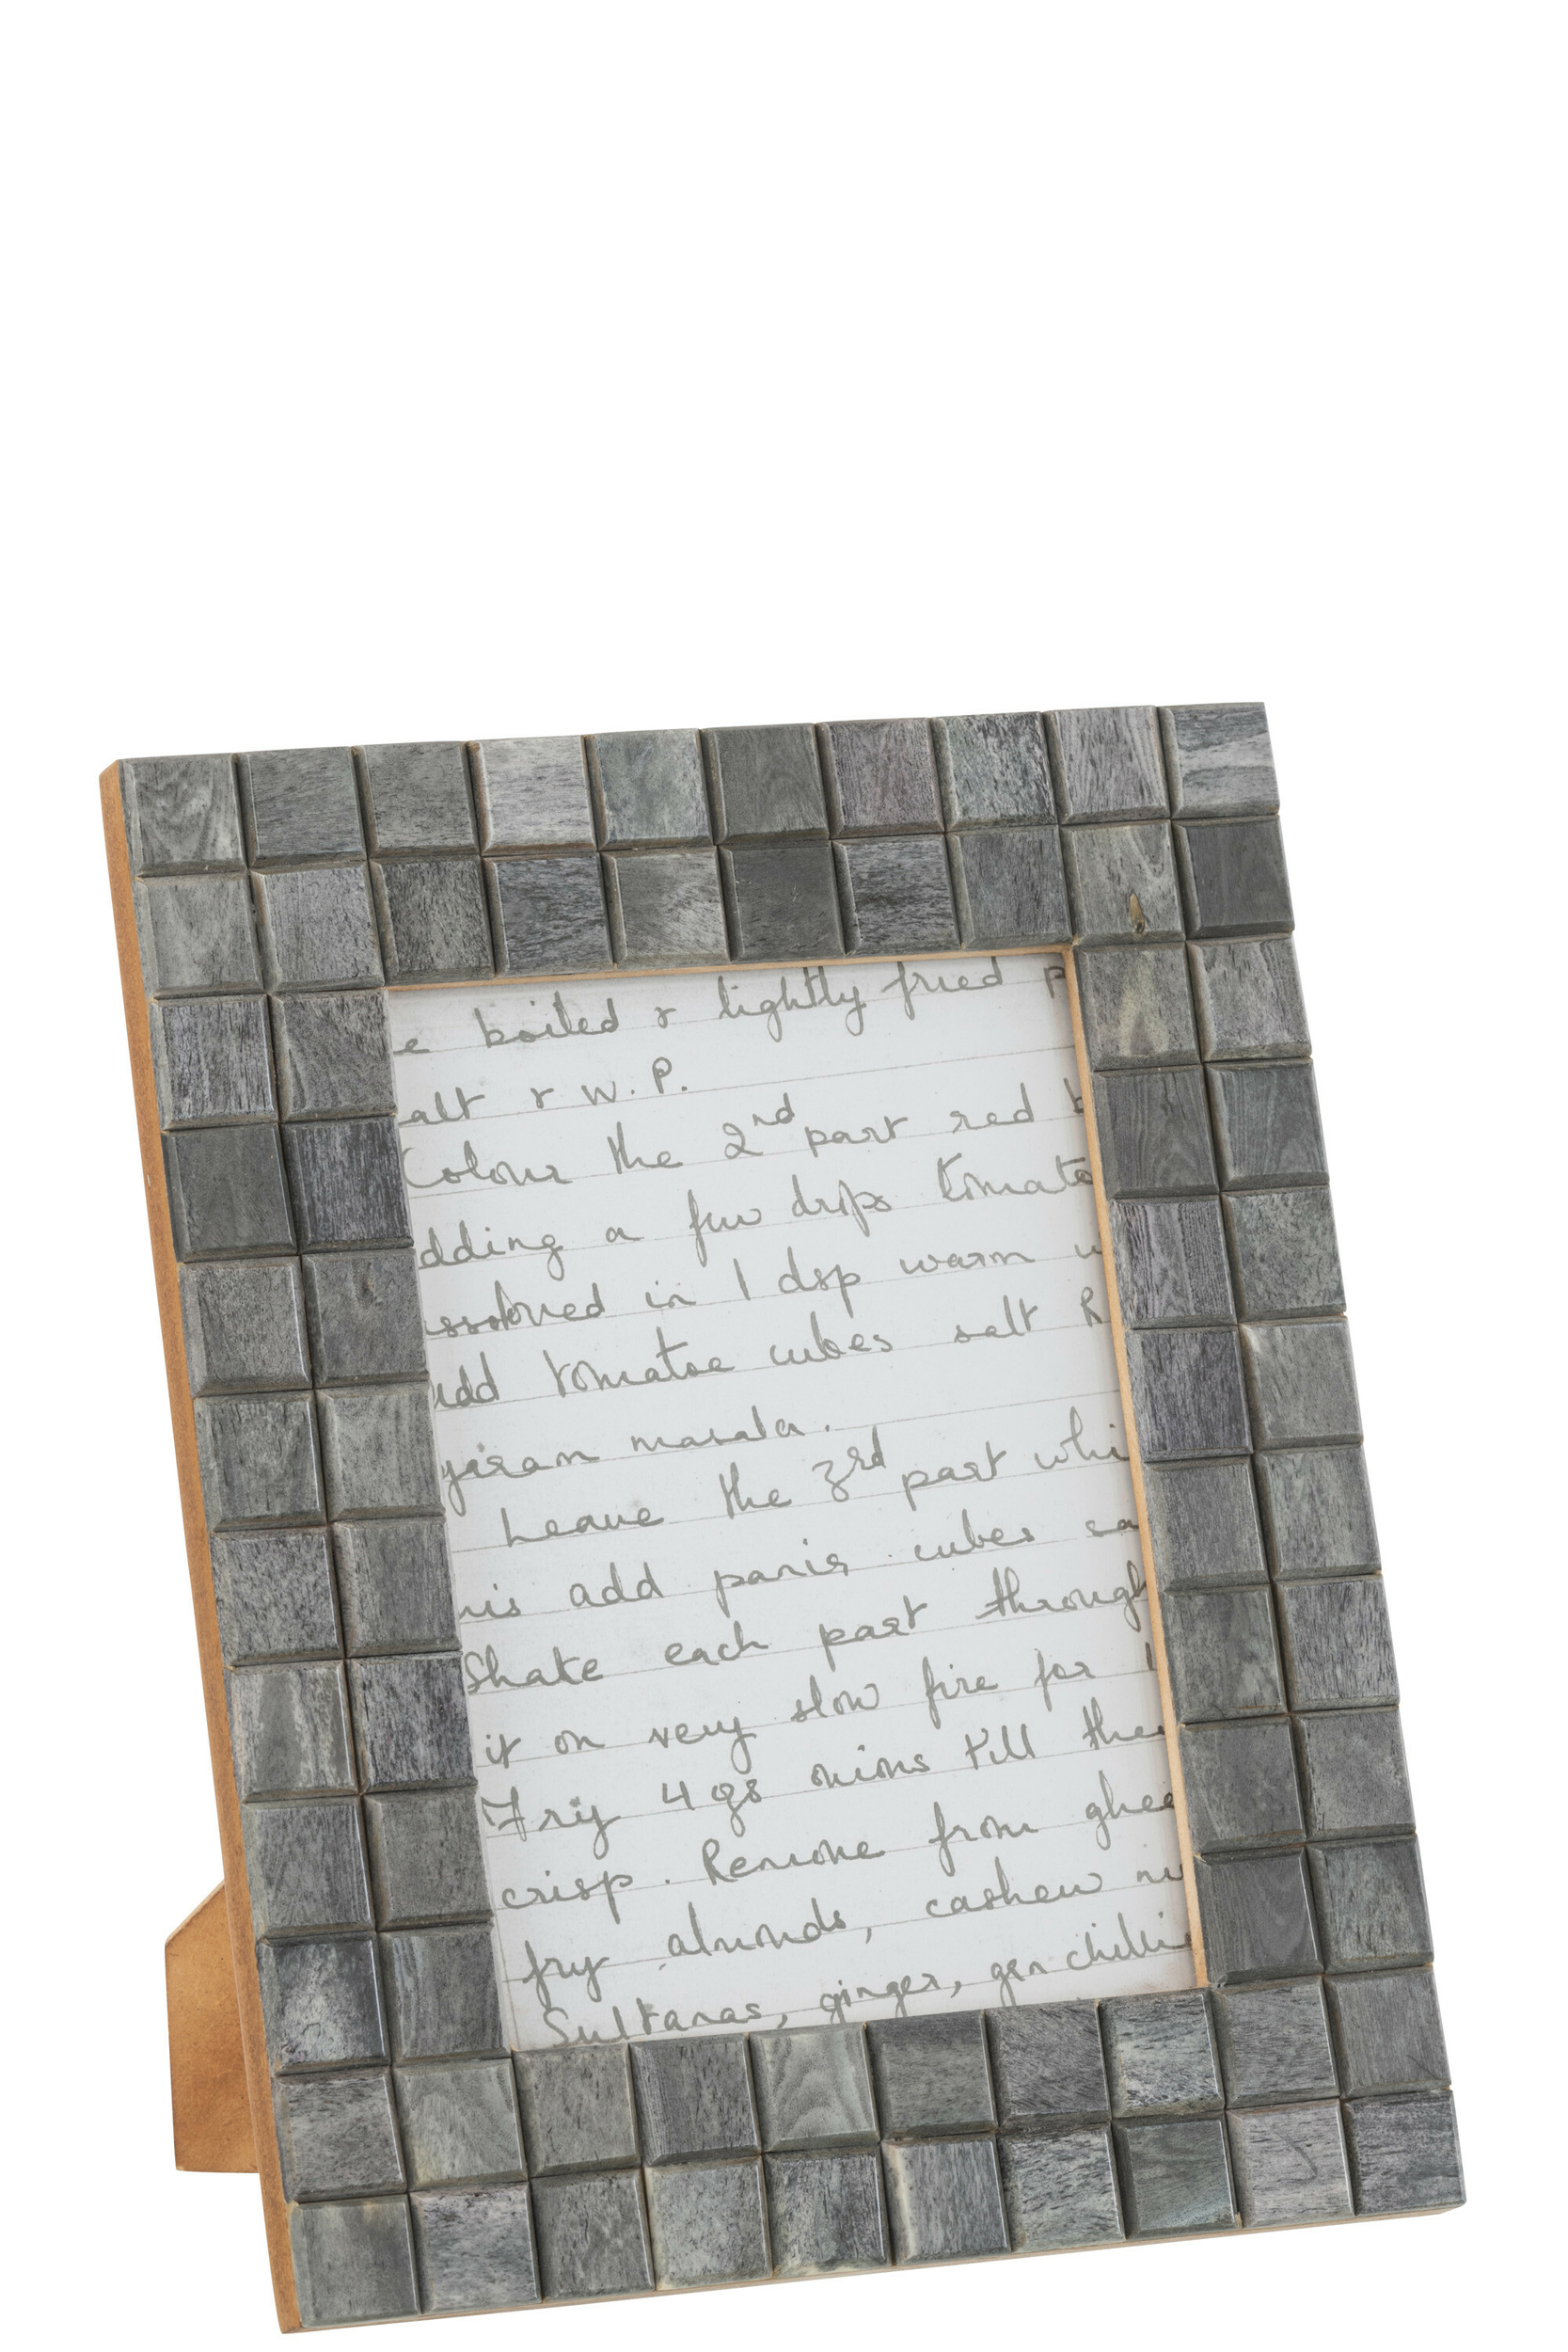 e boiled & lightly fried p
alt & W.P.
Colour the 2nd part red b
dding a few drops tomato
ssolved in 1 dsp warm w
add tomatoe cubes salt R
garam masala.
Leave the 3rd part whi
is add panir cubes sa
Shake each part through
it on very slow fire for 1
Fry 4 onions till the
crisp. Remove from ghee
fry almonds, cashew nu
Sultanas, ginger, grn chilli